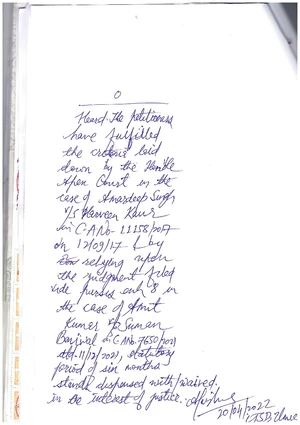 O
Heard. The petitioners
have fulfilled
the criteria laid
down by the Hon'ble
Apex Court in the
case of Amardeep Singh
V/S Harveen Kaur
in C.A No- 11158/2017
on 12/09/17 & by
relying upon
the judgment filed
vide pursis exh 8 in
the case of Amit
Kumar v/s Suman
Beniwal in C.A No. 7650/2021
dtd. 11/12/2021, statutory
period of six months
stands dispensed with/waived.
in the interest of justice.
20/04/2022